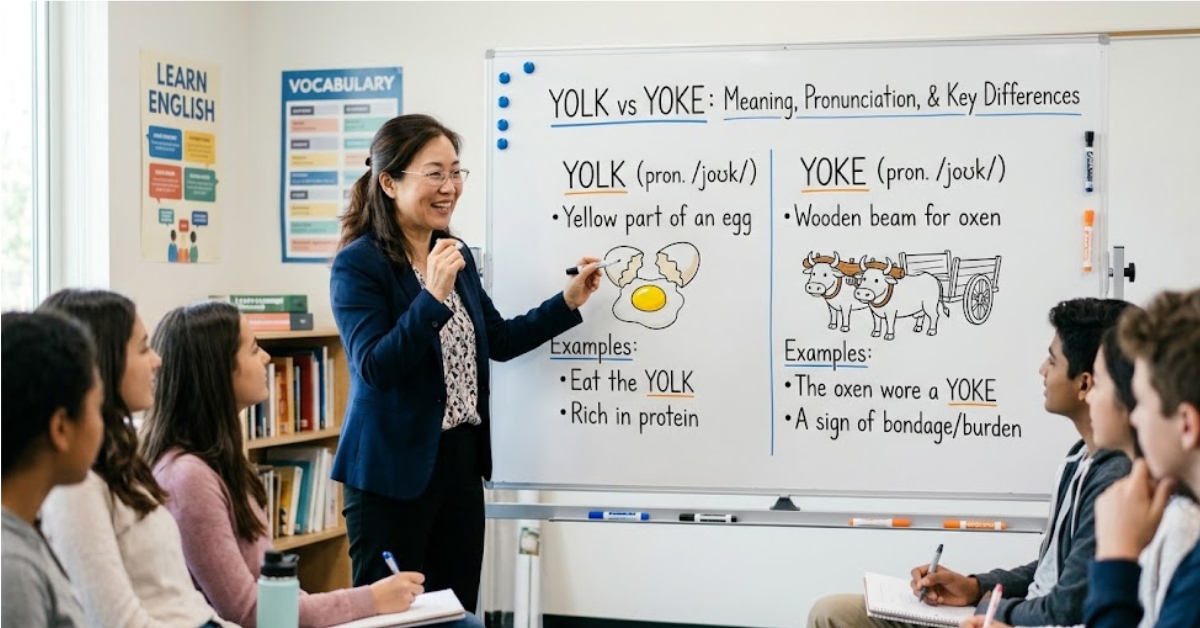 LEARN
ENGLISH
VOCABULARY
YOLK vs YOKE: Meaning, Pronunciation, & Key Differences
YOLK (pron. /joʊk/)
• Yellow part of an egg
Examples:
• Eat the YOLK
• Rich in protein
YOKE (pron. /joʊk/)
• Wooden beam for oxen
Examples:
• The oxen wore a YOKE
• A sign of bondage/burden